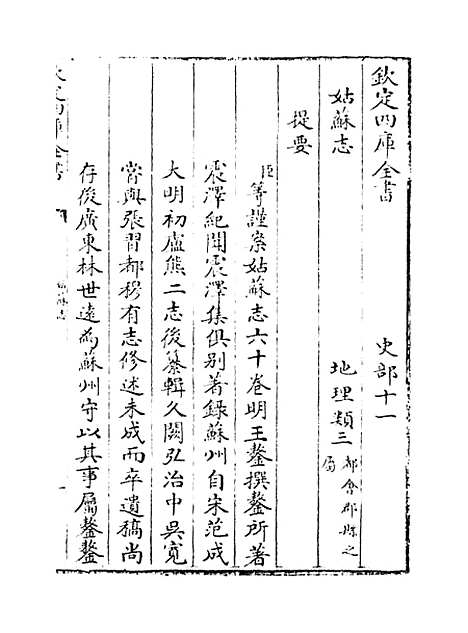 欽定四庫全書 史部十一
姑蘇志 地理類三 都會郡縣之屬
提要
臣等謹案姑蘇志六十卷明王鏊撰鏊所著
震澤紀聞震澤集俱别著錄蘇州自宋范成
大明初盧熊二志後纂輯久闕弘治中吳寛
嘗與張習都穆有志修述未成而卒遺稿尚
存後廣東林世遠為蘇州守以其事屬鏊鏊